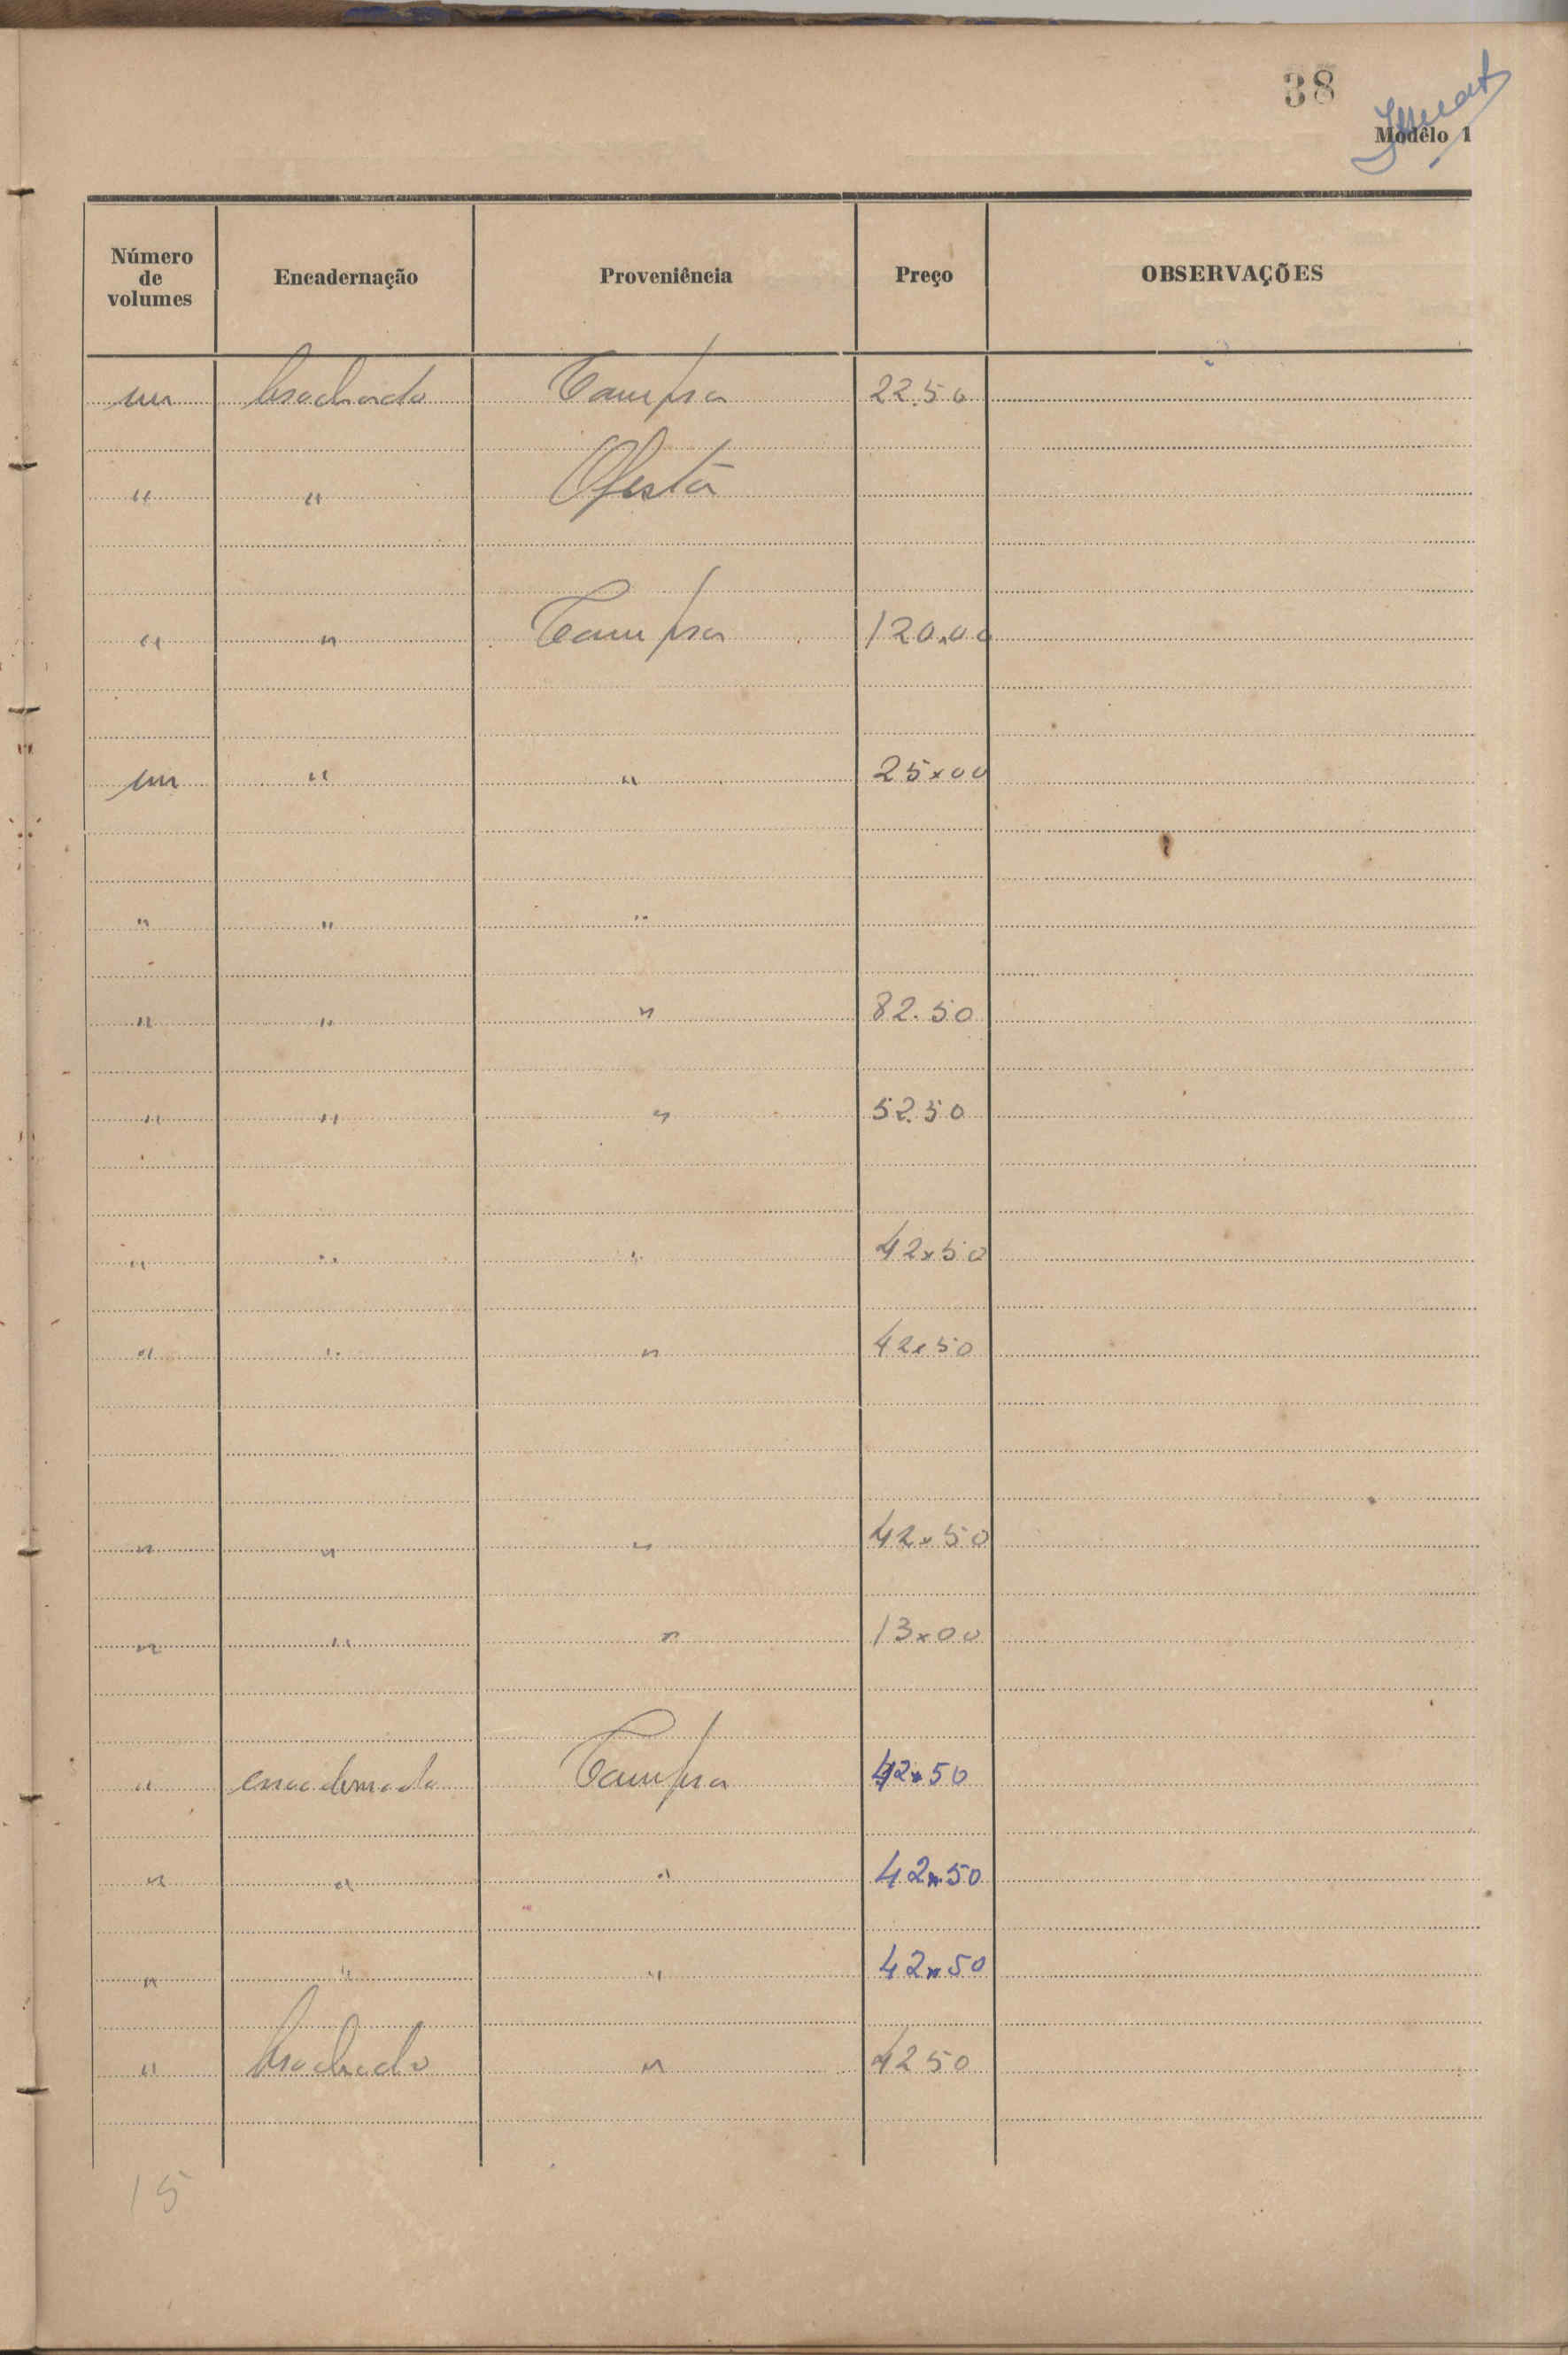 38
Modêlo 1
Número de volumes Encadernação Proveniência Preço OBSERVAÇÕES
um brochado Compra 22.50
" " Oferta
" " Compra 120.00
um " " 25x00
" " "
" " " 82.50
" " " 52.50
" " " 42x50
" " " 42x50
" " " 42x50
" " " 13x00
" encadernado Compra 42x50
" " " 42x50
" " " 42x50
" brochado " 4250
15